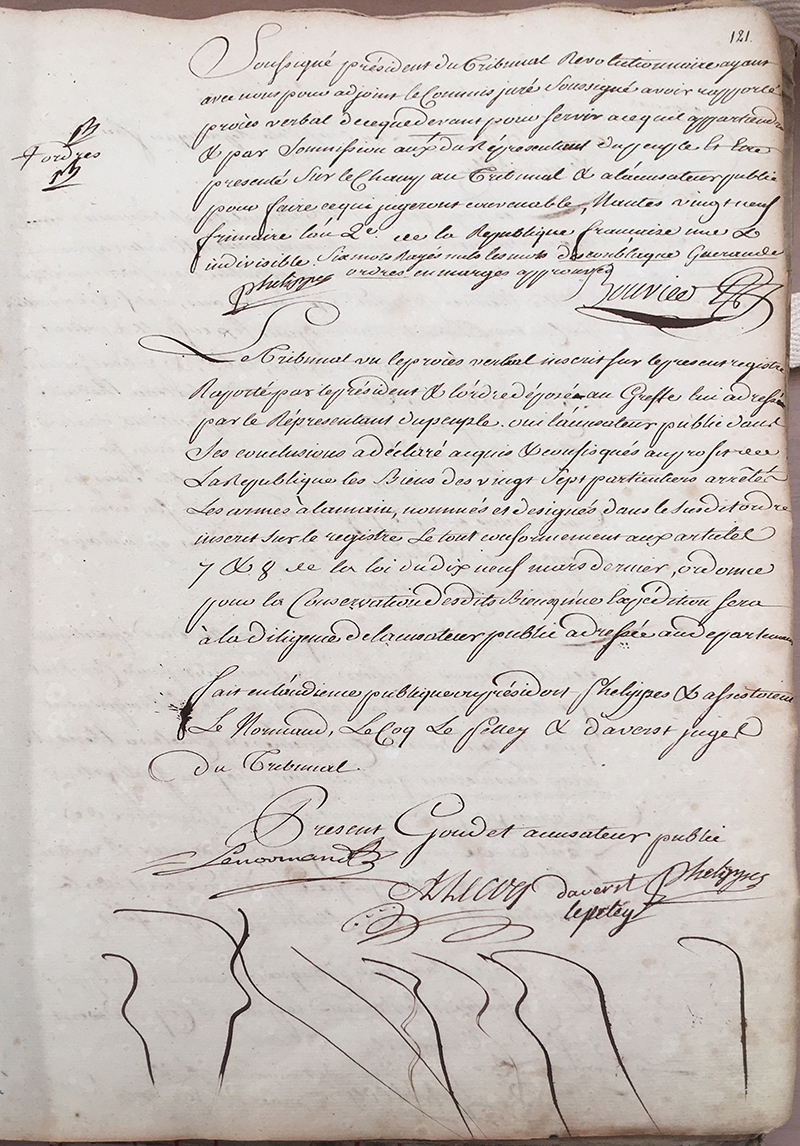 121.
Soussigné président du Tribunal Revolutionnaire ayant
avec nous pour adjoint le Commis juré Soussigné avoir rapporté
procès verbal de ce que devant pour servir a ce quil appartiendra
& par Soumission aux du Répresentant du peuple Et Etre
presenté Sur le Champ au Tribunal & a lácusateur public
pour faire ce qui jugeront convenable, Nantes vingt neuf
frimaire lán 2e. de la Republique francaise une &
indivisible Six mots Rayés nuls les mots Guerande
ordres en marges approuvés
+ ordres
Phelippes
Bouvier
Le Tribunal vu le procès verbal inscrit sur le present registre
Raporté par le président & lórdre déposé au Greffe lui adressé
par le Répresentant du peuple. oui lácusateur public dans
Ses conclusions a déclaré acquis & confisqués au profit de
La Republique les Biens des vingt Sept particuliers arrêtés
Les armes à la main, nommés et designés dans le susdit ordre
inscrit sur le registre Le tout conformement aux articles
7 & 8 de la loi du dix neuf mars dernier, ordonne
pour la Conservation desdits Biens qúne Expédition sera
à la diligence de lacusateur public adressée au departement
fait en láudience publique ou président Phelippes & assistoient
Le Normand, Le Coq Le Pelley & d'averst juges
du Tribunal.
Présent Goudet acusateur public
Lenormand
A hLCoq daverst Phelippes
lepeley